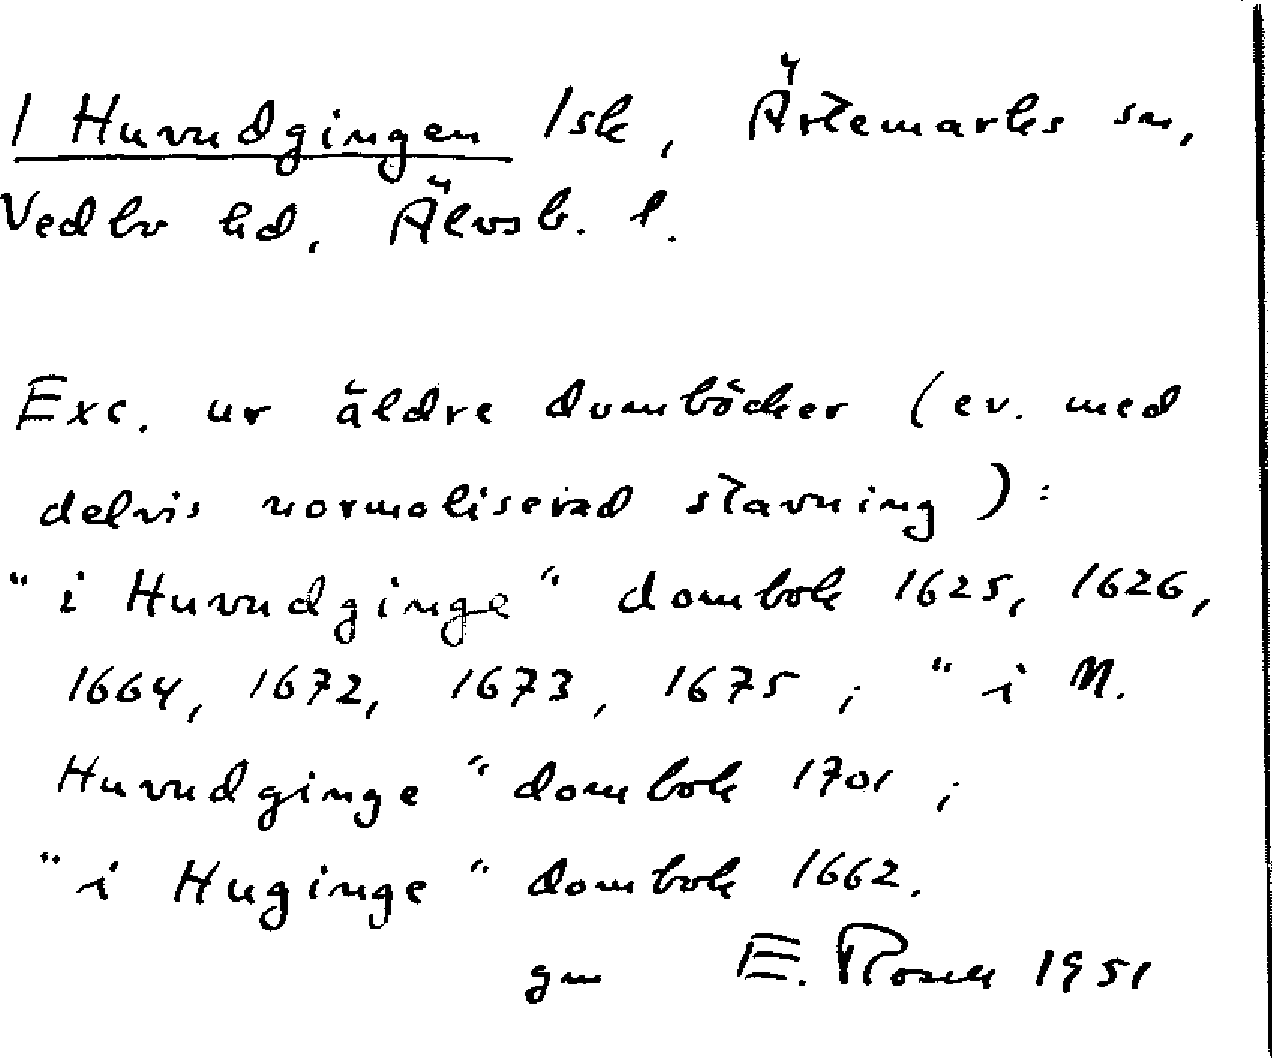 1 Huvudgingen 1sk, Ärtemarks sn,
Vedbo hd, Älvsb. l.
Exc. ur äldre domböcker (ev. med
delvis normaliserad stavning):
"i Huvudginge" dombok 1625, 1626,
1664, 1672, 1673, 1675; "i N.
Huvudginge" dombok 1701;
"i Huginge" dombok 1662.
gm E. 1951